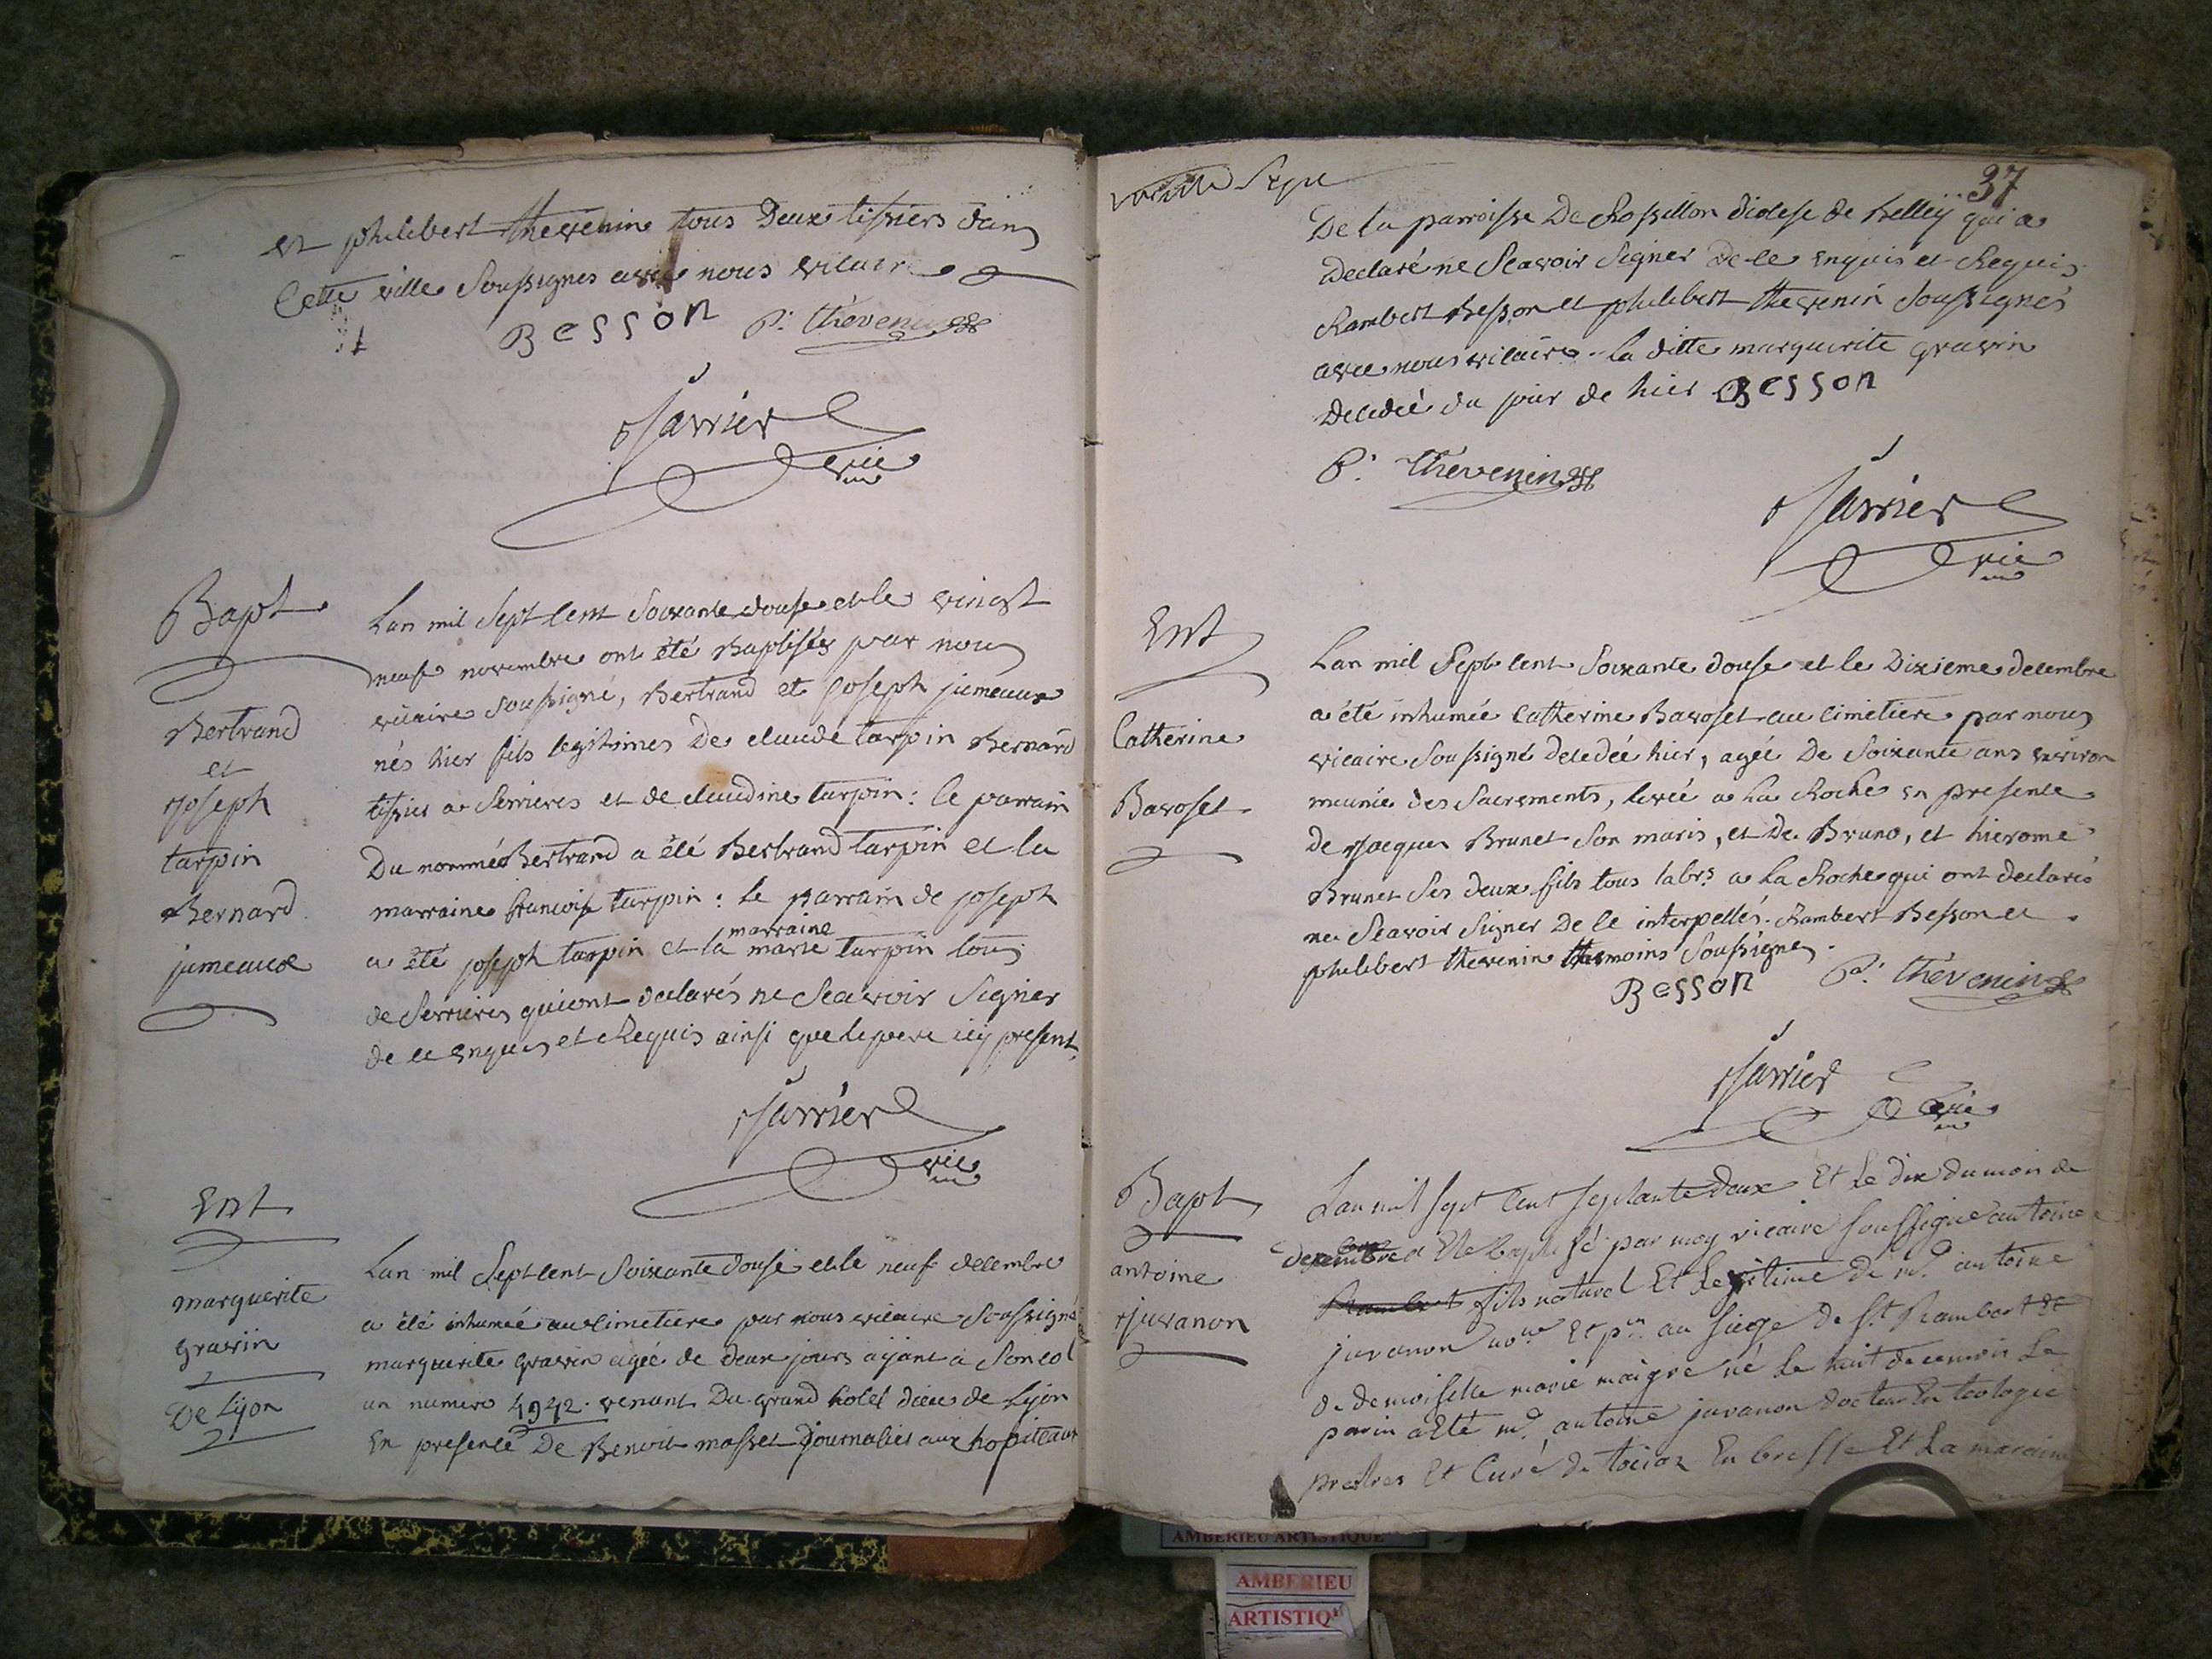 et philibert thevenin tous deux tissiers dans
Cette ville soussignés avec nous vicaire
Besson P. thevenin
Jarrier
vic
Bapt
Bertrand
et
Joseph
tarpin
Bernard
jumeaux
Lan mil sept cent soixante douse et le vingt
neuf novembre ont été Baptisés par nous
vicaire soussigné, Bertrand et Joseph jumeaux
nés hier fils legitimes De claude tarpin Bernard
tissier a Serrieres et de claudine tarpin : le parrain
Du nommé Bertrand a été Bertrand tarpin et la
marraine francoise tarpin : le parrain de joseph
a été joseph tarpin et la marraine marie tarpin tous
de Serrieres qui ont declarés ne Scavoir Signer
de ce enquis et Requis ainsi que le pere icy present
Jarrier
vic
Ent
marguerite
gravin
De Lyon
Lan mil Sept cent Soixante douse et le neuf decembre
a été inhumée au cimetiere par nous vicaire Soussigné
marguerite gravin agée de deux jours aÿant a Son col
un numero 4942. venant Du grand hotel dieu de Lyon
En presence De Benoit masset Journalier aux hopiteaux
vicille
37
De la parroisse De Rossillon diocese de Belleÿ qui a
Declaré ne Scavoir Signer de ce enquis et Requis
Rambert Besson et philibert thevenin Soussignés
avec nous vicaire.. la ditte marguerite gravin
Decedée du jour de hier Besson
P. thevenin
Jarrier
vic
Ent
Catherine
Bavoset
Lan mil Sept cent Soixante douse et le Dixieme decembre
a été inhumée Catherine Bavoset au cimetiere par nous
vicaire Soussigné decedée hier, agée De Soixante ans environ
munie des Sacrements, levée a La Roche en presence
de Jacques Brunet Son maris, et De Bruno, et hierome
Brunet Ses deux fils tous labrs a La Roche qui ont declarés
ne Scavoir Signer De ce interpellés. Rambert Besson et
philibert thevenin themoins Soussignes.
Besson P. thevenin
Jarrier
vic
Bapt
antoine
Juvanon
Lan mil sept cent septante deux Et Le dix du mois de
decembre a Ete baptisé par moy vicaire soussigné antoine
Rambert fils naturel Et Legitime de mr antoine
juvanon nore Et pr au siege de st Rambert et
de demoiselle marie maigre né le huit de ce mois Le
parin a Eté mr antoine juvanon docteur En teologie
prestres Et Curé de En bresse Et La maraine
AMBERIEU ARTISTIQUE
AMBERIEU
ARTISTIQ